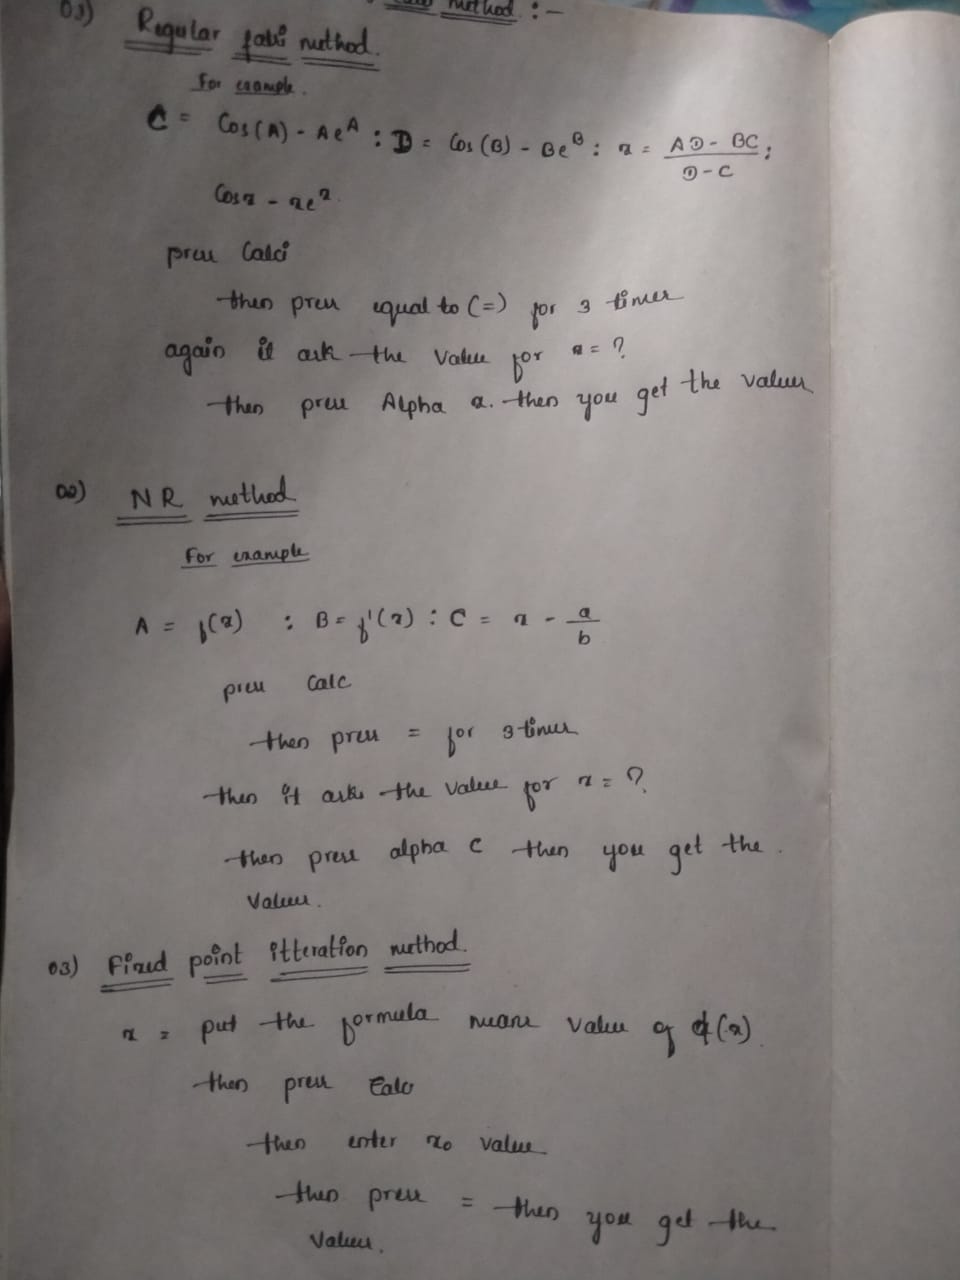 method :-
03) Regular falsi method.
For example.
C = Cos(A) - Ae^A : D = Cos(B) - Be^B : x = (AD - BC)/(D - C) ;
Cosx - xe^x.
press Calci
then press equal to (=) for 3 times
again it ask the value for x = ?
then press Alpha x. then you get the values
02) NR method
For example
A = f(x) : B = f'(x) : C = x - a/b
press Calc
then press = for 3 times
then it asks the value for x = ?
then press alpha C then you get the.
Values.
03) Fixed point itteration method.
x = put the formula means value of φ(x).
then press Calc
then enter x0 value
then press = then you get the
Values.